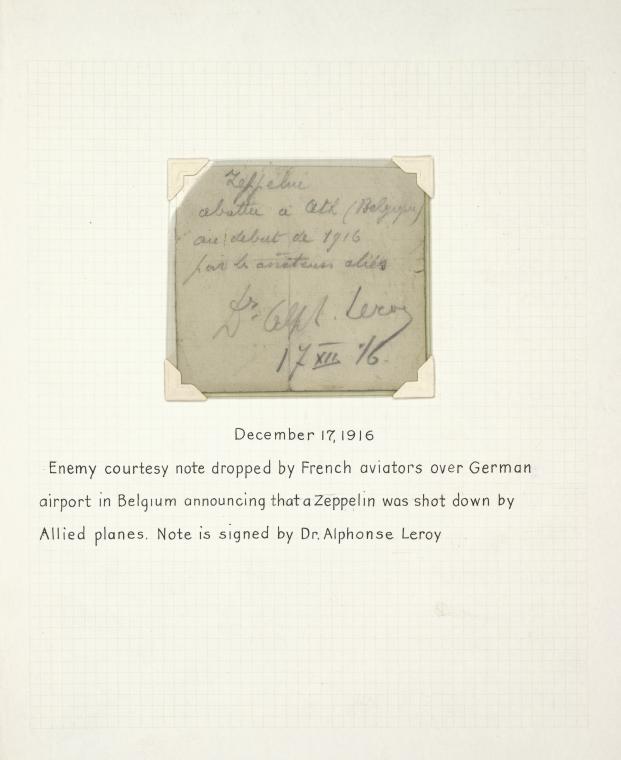 Zeppelin
abattu à Ath (Belgique)
au debut de 1916
par les aviateurs aliés
Dr. Alph. Leroy
17 XII 16.
December 17, 1916
Enemy courtesy note dropped by French aviators over German
airport in Belgium announcing that a Zeppelin was shot down by
Allied planes. Note is signed by Dr. Alphonse Leroy